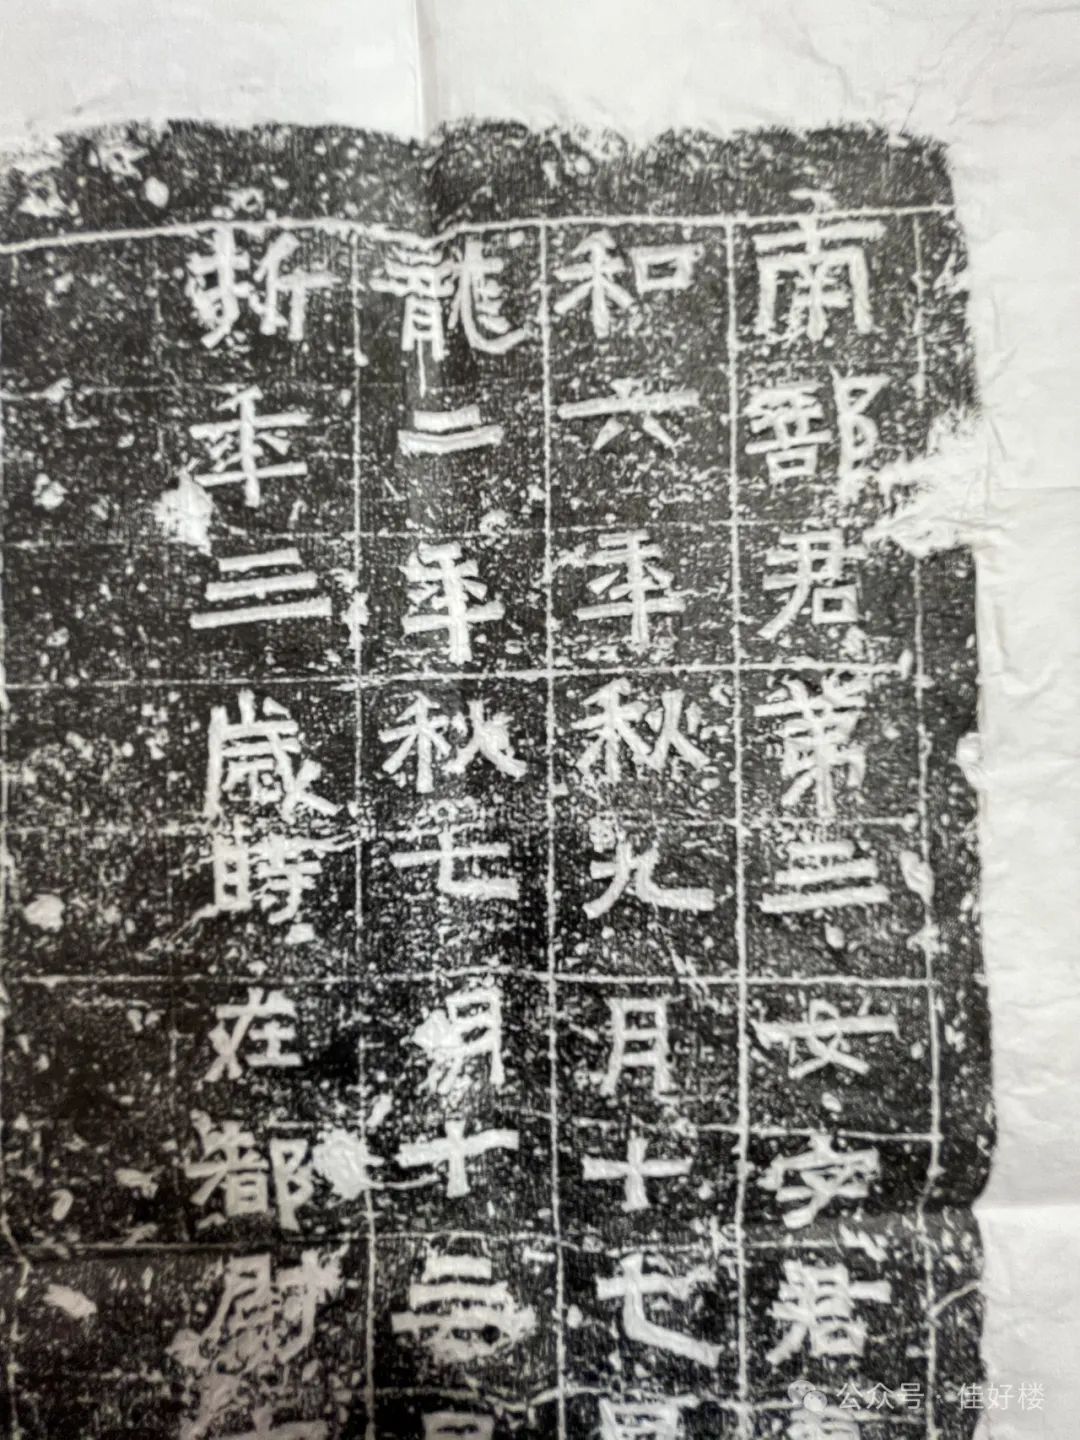 南部君第三女字君
和六年秋九月十七
龍二年秋七月十三
折年三歲時在都尉
公众号·佳好楼